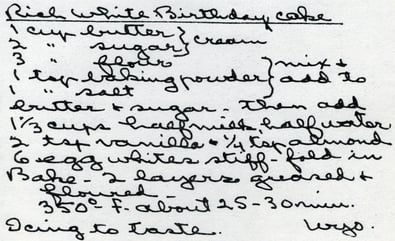 Rich White Birthday Cake
1 cup butter } cream
2 " sugar
3 " flour } mix &
1 tsp baking powder } add to
1 " salt
butter & sugar - then add
1 1/3 cups half milk, half water
2 tsp vanilla & 1/4 tsp almond
6 egg whites stiff - fold in
Bake - 2 layers greased &
floured -
350° F. about 25-30 min.
Icing to taste. Wyo.